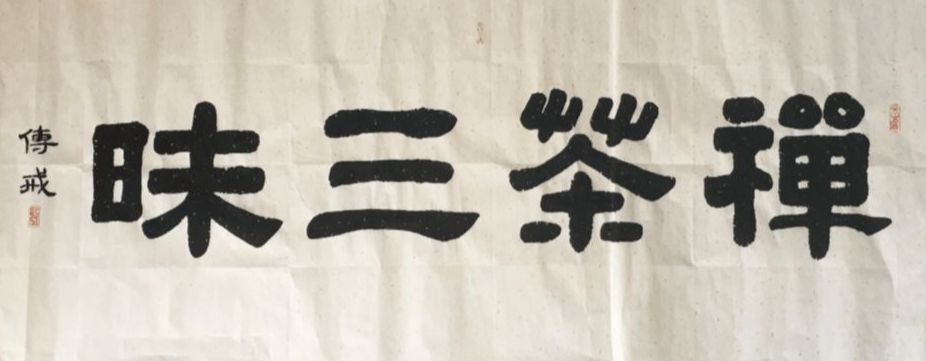 禪茶三昧
傳戒